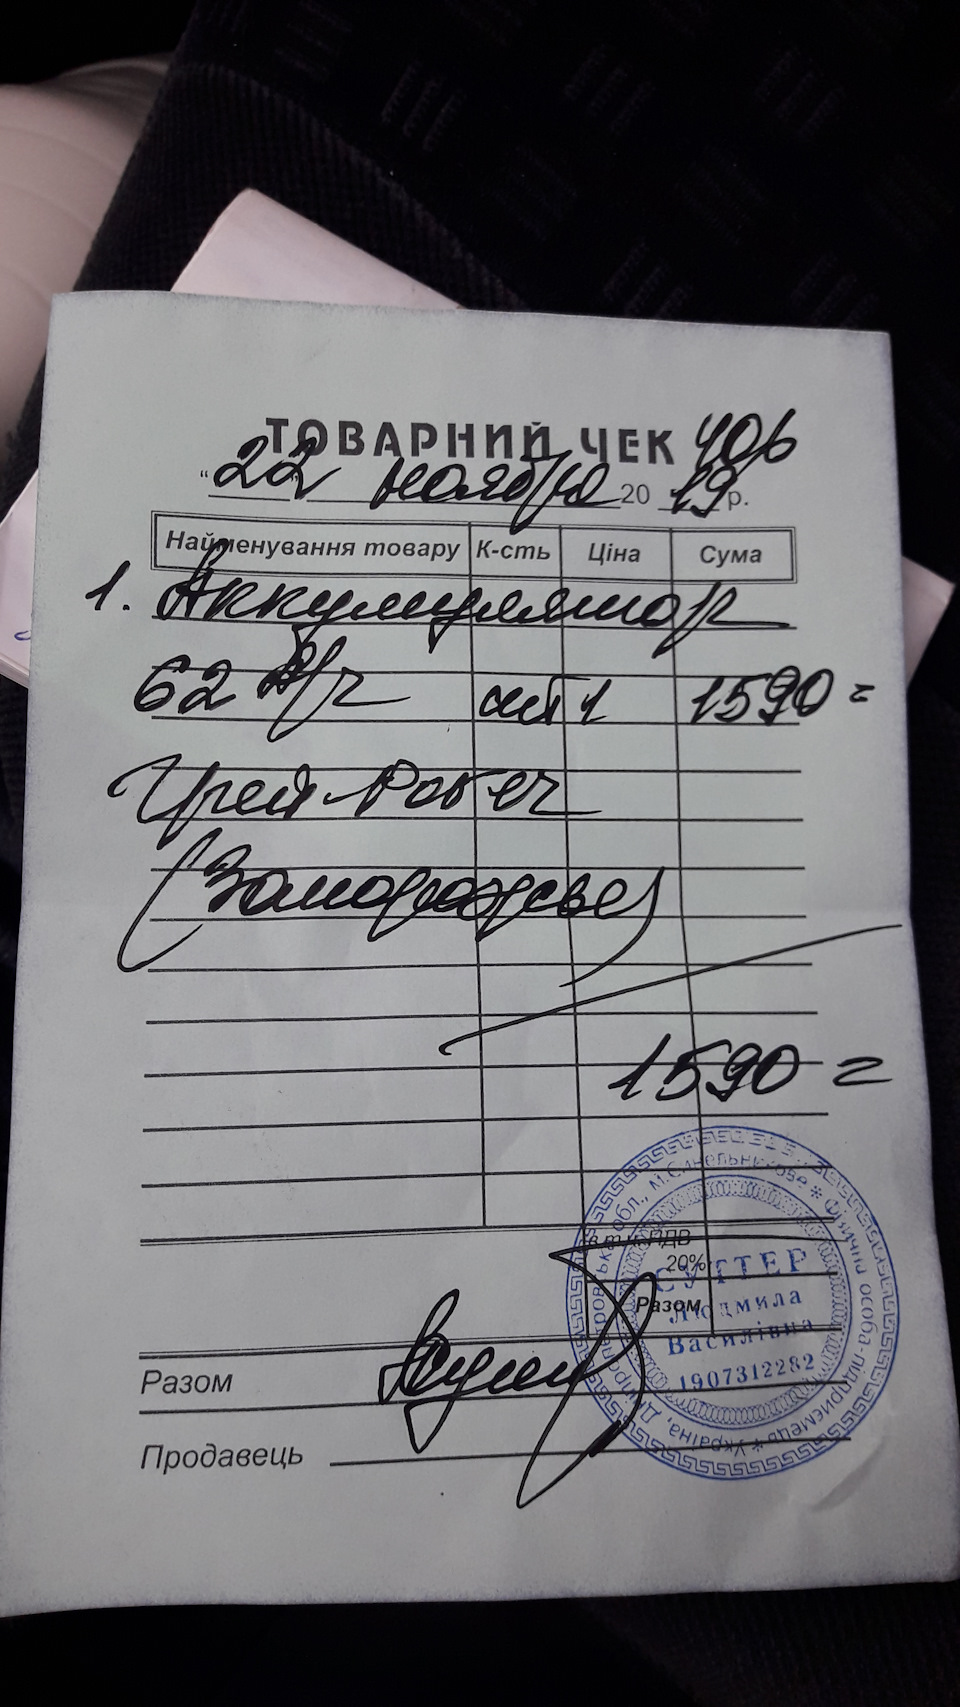 ТОВАРНИЙ ЧЕК 406
" 22 ноября 20 19 р.
Найменування товару К-сть Ціна Сума
1. Аккумулятор
62 А/ч шт 1 1590=
Грей
1590=
в т.ч. ПДВ
20%
Разом
Разом
Продавець
Україна, Дніпропетровська обл., м.Синельникове * Фізична особа-підприємець *
СУТТЕР
Людмила
Василівна
1907312282